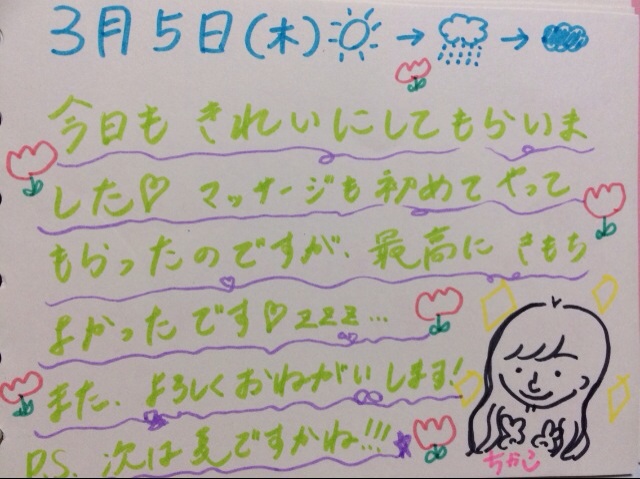 3月5日(木)
今日も きれいにしてもらいま
した♡ マッサージも 初めて やって
もらったのですが、最高に きもち
よかったです♡zzz…
また、よろしくおねがいします!
P.S. 次は夏ですかね!!!
ちかこ